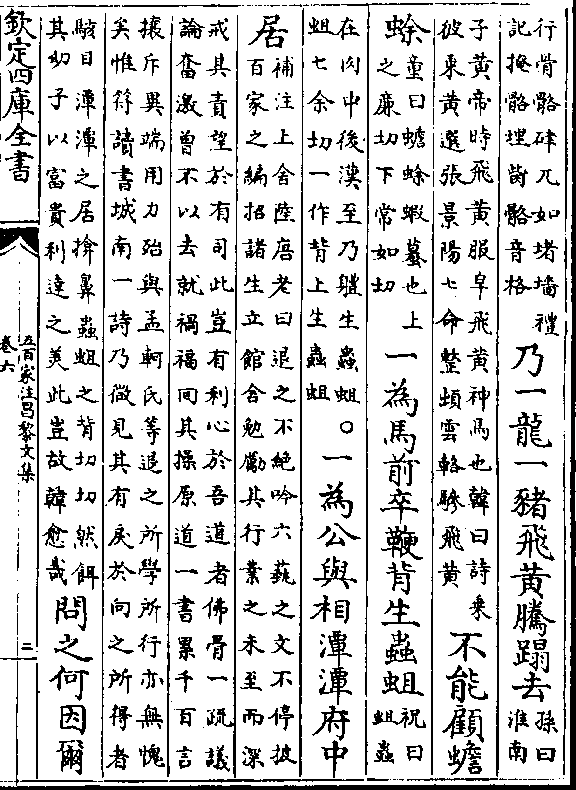 行骨骼硉兀如堵墻禮
記掩骼埋胔骼音格
乃一龍一豬飛黃騰蹋去
孫曰
淮南
子黃帝時飛黃服皁飛黃神馬也韓曰詩乘
彼乘黃選張景陽七命整蝢雲輅驂飛黃
不能顧蟾
蜍
童曰蟾蜍蝦蟇也上
之廉切下常如切
一為馬前卒鞭背生蟲蛆
祝曰
蛆蟲
在肉中後漢至乃髓生蟲蛆
蛆七余切一作背上生蟲蛆
○一為公與相潭潭府中
居
補注上舍陸唐老曰退之不絕吟六蓺之文不停披
百家之編招諸生立館舍勉勵其行業之未至而深
戒其責望於有司此豈有利心於吾道者佛骨一疏議
論奮激曾不以去就禍福囘其操原道一書累千百言
攘斥異端用力殆與孟軻氏等退之所學所行亦無愧
矣惟符讀書城南一詩乃微見其有戾於向之所得者
駭目潭潭之居掩鼻蟲蛆之背切切然餌
其幼子以富貴利達之美此豈故韓愈哉
問之何因爾
欽定四庫全書
五百家注昌黎文集
卷六
二